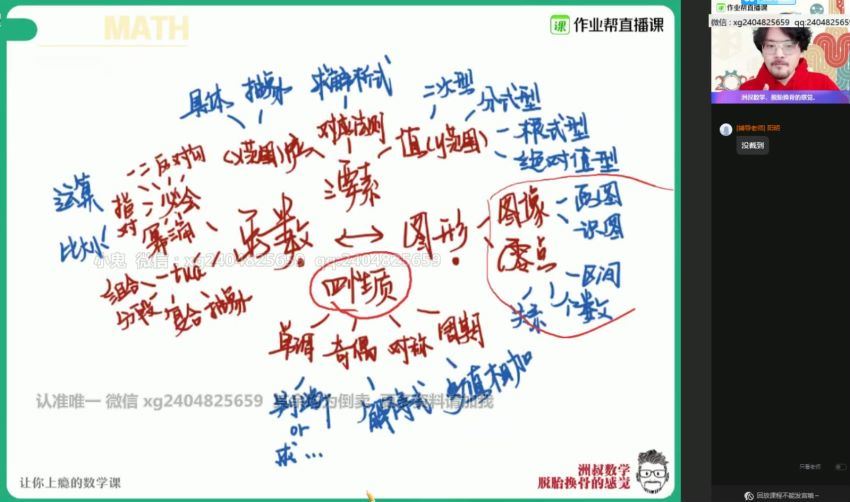 MATH
课 作业帮直播课
作业帮直播课
微信: xg2404825659 qq:2404825659
洲叔数学,脱胎换骨的感觉。
[辅导老师] 阳明
没截到
具体 抽象
求解析式
二次型
分式型
(x范围)
对应法则
值(y范围)
根式型
绝对值型
三要素
一二反对勾
运算
指
必会
对
幂三角
比大小
函数
图形
图像
画图
识图
零点
区间
个数
关系
小鬼 微信:xg2404825659 qq:2404825659
四性质
组合
分段
复合 抽象
单调
奇偶
对称
周期
判断
or
求...
解不等式
函数值相加
认准唯一 微信 xg2404825659
为倒卖
资料请加我
让你上瘾的数学课
洲叔数学
脱胎换骨的感觉
只看老师
回放课程不能发言哦~